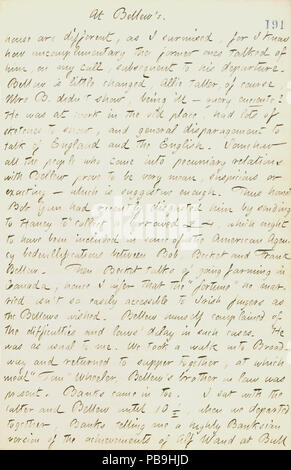 At Bellew's.
191
neuse are different, as I surmised, for I know
how uncomplimentary the former ones talked of
him, on my call, subsequent to his departure.
Bellew is little changed. Allie taller, of course
Mrs B. didn't show, being ill
He was at work in the old place, had lots of
sketches to show, and general disparagement to
talk of England and the English. Somehow
all the people who come into pecuniary relations
with Bellew prove to be very mean, suspicious or
exacting — which is suggestive enough. Thus
Bob Gun had him by sending
to Haney to collect borrowed which ought
to have been included in some of the American Agen-
cy bedevillications between Bob, Becket and Frank
Bellew. Then Becket talks of going farming in
Canada, hence I infer that the "fortune" he mar-
ried isn't so easily accessible to Irish fingers as
the Bellews wished. Bellew himself complained of
the difficulties and laws' delay in such cases. He
was as usual to me. We took a walk into Broad-
way and returned to supper together, at which
meal "Tom" Wheeler, Bellew's brother in law was
present. Banks came in too. I sat with the
latter and Bellew until 10 when we departed
together, Banks telling me a highly Banksian
version of the achievements of Alf Waud at Bull
alamy
PB9HJD